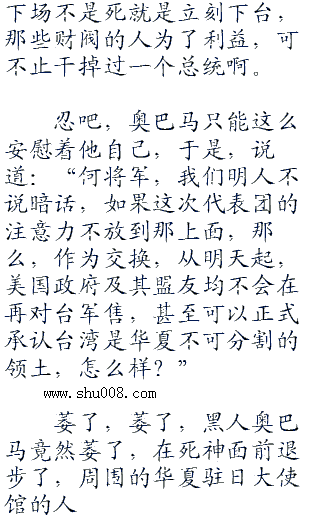 下场不是死就是立刻下台，
那些财阀的人为了利益，可
不止干掉过一个总统啊。
忍吧，奥巴马只能这么
安慰着他自己，于是，说
道：“何将军，我们明人不
说暗话，如果这次代表团的
注意力不放到那上面，那
么，作为交换，从明天起，
美国政府及其盟友均不会在
再对台军售，甚至可以正式
承认台湾是华夏不可分割的
领土，怎么样？”
www.shu008.com
萎了，萎了，黑人奥巴
马竟然萎了，在死神面前退
步了，周围的华夏驻日大使
馆的人